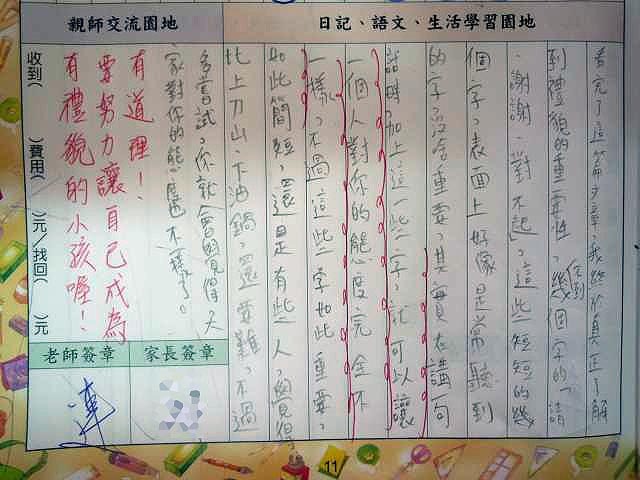 日記、語文、生活學習園地
看完了這篇文章,我終於真正了解
到禮貌的重要性,幾個字的「請
、謝謝、對不起」,這些短短的幾
個字,表面上好像是常聽到
的字,沒啥重要,其實在講一句
話時加上這一些字,就可以讓
一個人對你的態度完全不
一樣,不過這些字如此重要,
如此簡短,還是有些人,覺得
比上刀山、下油鍋,還要難,不過
多嘗試,你就會覺得大
家對你的態度也不一樣了。
親師交流園地
有道理!
要努力讓自己成為
有禮貌的小孩喔!
收到( )費用( )元/找回( )元
家長簽章
老師簽章
11